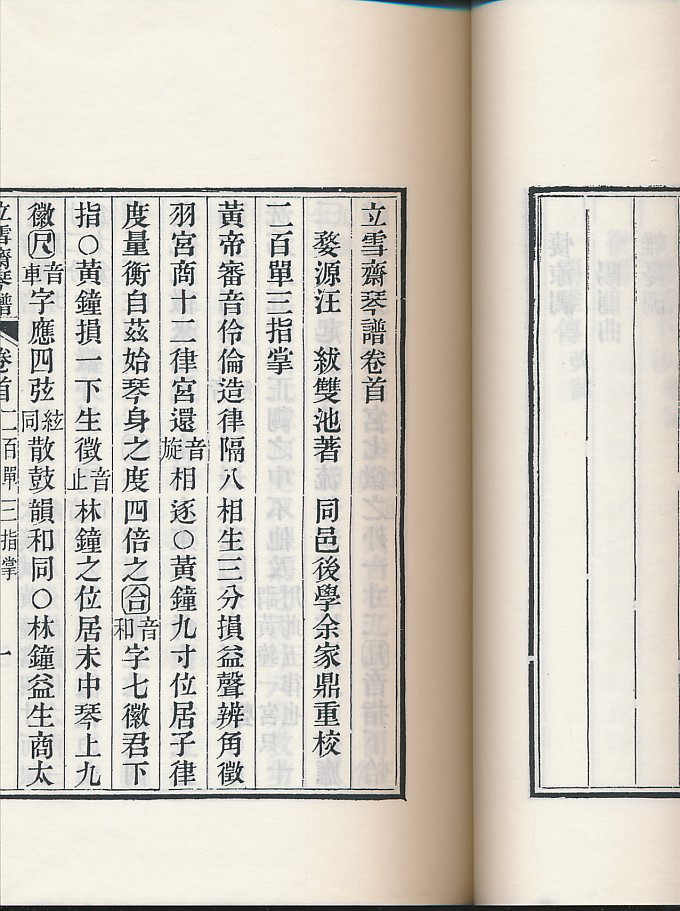 立雪齋琴譜卷首
婺源汪 紱雙池著 同邑後學余家鼎重校
二百單三指掌
黃帝審音伶倫造律隔八相生三分損益聲辨角徵
羽宮商十二律宮還音旋相逐○黃鐘九寸位居子律
度量衡自茲始琴身之度四倍之合音和字七徽君下
指○黃鐘損一下生徵音止林鐘之位居未中琴上九
徽尺音車字應四弦絃同散鼓韻和同○林鐘益生商太
立雪齋琴譜 卷首 二百單三指掌 一